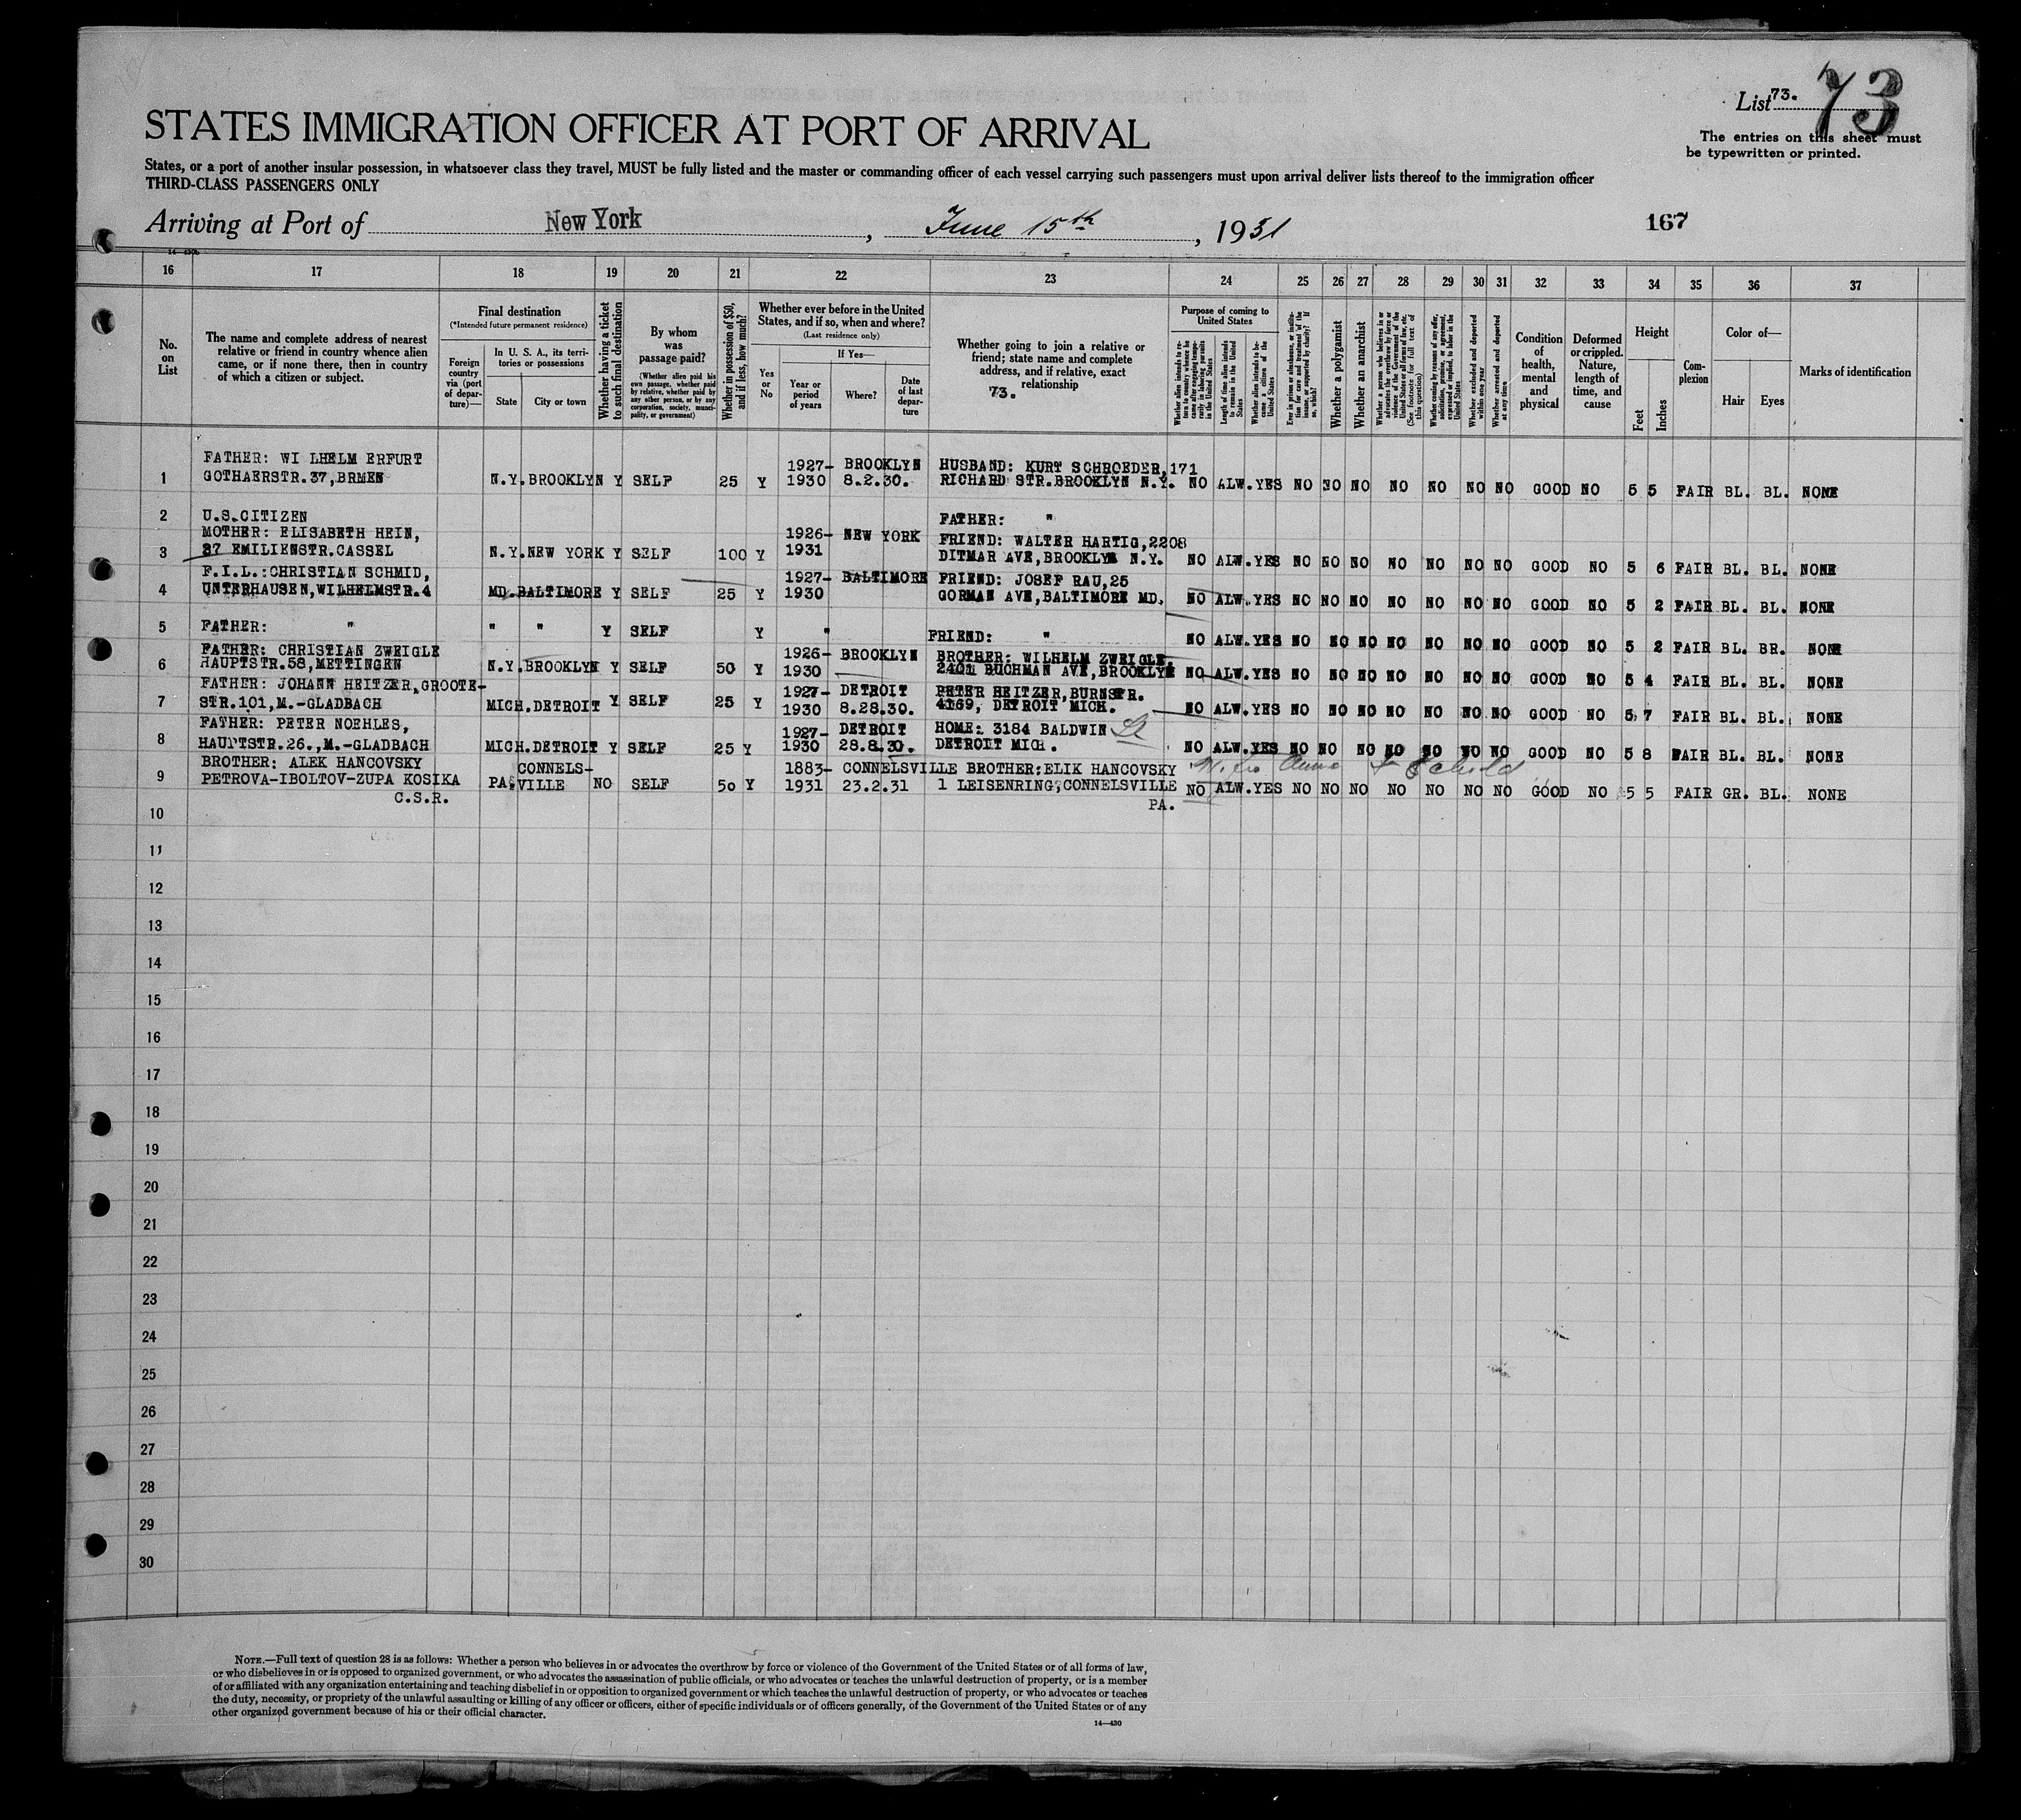 List 73. 73
The entries on this sheet must
be typewritten or printed.
STATES IMMIGRATION OFFICER AT PORT OF ARRIVAL
States, or a port of another insular possession, in whatsoever class they travel, MUST be fully listed and the master or commanding officer of each vessel carrying such passengers must upon arrival deliver lists thereof to the immigration officer
THIRD-CLASS PASSENGERS ONLY
Arriving at Port of New York, June 15th, 1931
167
16 17 18 19 20 21 22 23 24 25 26 27 28 29 30 31 32 33 34 35 36 37
No. on List
The name and complete address of nearest relative or friend in country whence alien came, or if none there, then in country of which a citizen or subject.
Final destination
(*Intended future permanent residence)
Foreign country via (port of departure)—
In U. S. A., its territories or possessions
State City or town
Whether having a ticket to such final destination
By whom was passage paid?
(Whether alien paid his own passage, whether paid by relative, whether paid by any other person, or by any corporation, society, municipality, or government)
Whether in possession of $50, and if less, how much?
Whether ever before in the United States, and if so, when and where?
(Last residence only)
Yes or No
If Yes—
Year or period of years
Where?
Date of last departure
Whether going to join a relative or friend; state name and complete address, and if relative, exact relationship
73.
Purpose of coming to United States
Whether alien intends to return to country whence he came after engaging temporarily in laboring pursuits in the United States
Length of time alien intends to remain in the United States
Whether alien intends to become a citizen of the United States
Ever in prison or almshouse, or institution for care and treatment of the insane, or supported by charity? If so, which?
Whether a polygamist
Whether an anarchist
Whether a person who believes in or advocates the overthrow by force or violence of the Government of the United States or all forms of law, etc. (See footnote for full text of this question)
Whether coming by reasons of any offer, solicitation, promise, or agreement, expressed or implied, to labor in the United States
Whether excluded and deported within one year
Whether arrested and deported at any time
Condition of health, mental and physical
Deformed or crippled. Nature, length of time, and cause
Height
Feet Inches
Complexion
Color of—
Hair Eyes
Marks of identification
FATHER: WI LHELM ERFURT 1927- BROOKLYN HUSBAND: KURT SCHROEDER, 171
1 GOTHAERSTR. 37, BRMEN N.Y. BROOKLYN Y SELF 25 Y 1930 8.2.30. RICHARD STR. BROOKLYN N.Y. NO ALW. YES NO NO NO NO NO NO NO GOOD NO 5 5 FAIR BL. BL. NONE
2 U.S. CITIZEN FATHER: "
MOTHER: ELISABETH HEIN, 1926- NEW YORK FRIEND: WALTER HARTIG, 2208
3 37 EMILIENSTR. CASSEL N.Y. NEW YORK Y SELF 100 Y 1931 DITMAR AVE, BROOKLYN N.Y. NO ALW. YES NO NO NO NO NO NO NO GOOD NO 5 6 FAIR BL. BL. NONE
F.I.L.: CHRISTIAN SCHMID, 1927- BALTIMORE FRIEND: JOSEF RAU, 25
4 UNTERHAUSEN, WILHELMSTR. 4 MD. BALTIMORE Y SELF 25 Y 1930 GORMAN AVE, BALTIMORE MD. NO ALW. YES NO NO NO NO NO NO NO GOOD NO 5 2 FAIR BL. BL. NONE
5 FATHER: " " " Y SELF Y " FRIEND: " NO ALW. YES NO NO NO NO NO NO NO GOOD NO 5 2 FAIR BL. BR. NONE
FATHER: CHRISTIAN ZWEIGLE 1926- BROOKLYN BROTHER: WILHELM ZWEIGLE,
6 HAUPTSTR. 58, METTINGEN N.Y. BROOKLYN Y SELF 50 Y 1930 2401 BUCHMAN AVE, BROOKLYN NO ALW. YES NO NO NO NO NO NO NO GOOD NO 5 4 FAIR BL. BL. NONE
FATHER: JOHANN HEITZER, GROOTE- 1927- DETROIT PETER HEITZER, BURNSTR.
7 STR. 101, M.-GLADBACH MICH. DETROIT Y SELF 25 Y 1930 8.28.30. 4169, DETROIT MICH. NO ALW. YES NO NO NO NO NO NO NO GOOD NO 5 7 FAIR BL. BL. NONE
FATHER: PETER NOEHLES, 1927- DETROIT HOME: 3184 BALDWIN
8 HAUPTSTR. 26., M.-GLADBACH MICH. DETROIT Y SELF 25 Y 1930 28.8.30. DETROIT MICH. NO ALW. YES NO NO NO NO NO NO NO GOOD NO 5 8 FAIR BL. BL. NONE
BROTHER: ALEK HANCOVSKY CONNELS- 1883- CONNELSVILLE BROTHER: ELIK HANCOVSKY
9 PETROVA-IBOLTOV-ZUPA KOSIKA PA. VILLE NO SELF 50 Y 1931 23.2.31 1 LEISENRING, CONNELSVILLE NO ALW. YES NO NO NO NO NO NO NO GOOD NO 5 5 FAIR GR. BL. NONE
C.S.R. PA.
10
11
12
13
14
15
16
17
18
19
20
21
22
23
24
25
26
27
28
29
30
NOTE.—Full text of question 28 is as follows: Whether a person who believes in or advocates the overthrow by force or violence of the Government of the United States or of all forms of law,
or who disbelieves in or is opposed to organized government, or who advocates the assassination of public officials, or who advocates or teaches the unlawful destruction of property, or is a member
of or affiliated with any organization entertaining and teaching disbelief in or opposition to organized government or which teaches the unlawful destruction of property, or who advocates or teaches
the duty, necessity, or propriety of the unlawful assaulting or killing of any officer or officers, either of specific individuals or of officers generally, of the Government of the United States or of any
other organized government because of his or their official character.
14—430